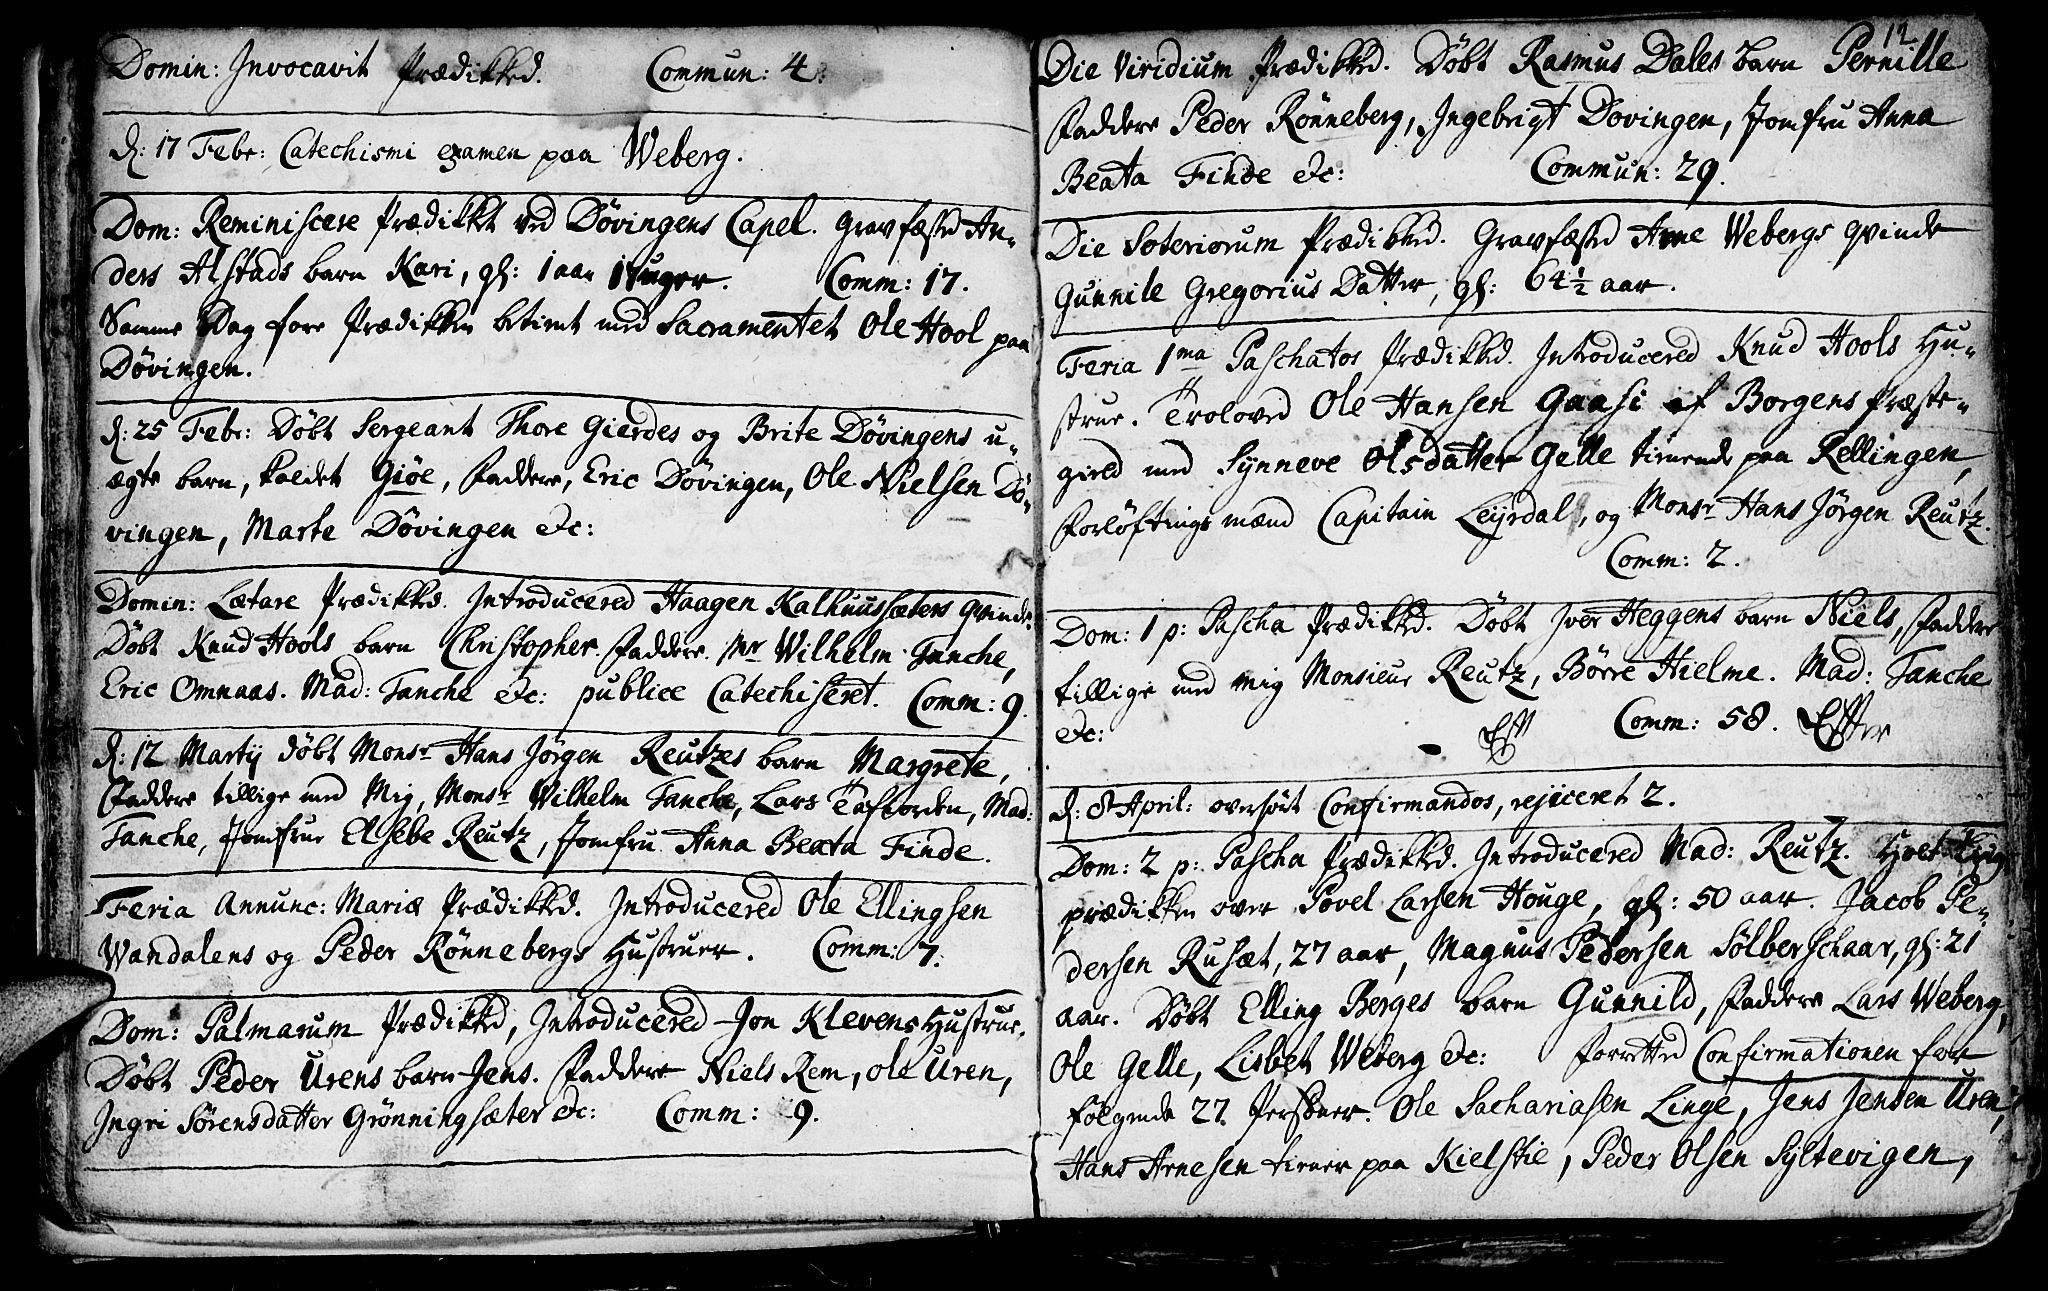 Domin: Invocavit Prædikked. Commun: 4.
d: 17 Febr: Catechismi examen paa Weberg.
Dom: Reminiscere Prædikket ved Døvingens Capel. Gravfæsted An-
ders Alstads barn Kari, gl: 1 aar 17 uger. Comm: 17.
Samme Dag fore Prædikken betient med Sacramentet Ole Hool paa
Døvingen.
d: 25 Febr: Døbt Sergeant Thore Gierdes og Brite Døvingens u-
ægte barn, kaldet Giøe, Faddere, Eric Døvingen, Ole Nielsen Dö-
vingen, Marte Døvingen etc:
Domin: Lætare Prædikked. Introducered Haagen Kalhuussæters qvinde.
Døbt Knud Hools barn Christopher. Faddere. Mr Wilhelm Tanche,
Eric Omnaas. Mad: Tanche etc: publice Catechiseret. Comm: 9.
d: 12 Martij døbt Monsr Hans Jørgen Reutzes barn Margrete,
Faddere tillige med Mig, Monsr Wilhelm Tanche, Lars Tafiorden, Mad:
Tanche, Jomfrue Elsebe Reutz, Jomfru Anna Beata Finde.
Feria Annunc: Mariæ Prædikked. Introducered Ole Ellingsen
Wandalens og Peder Rönnebergs Hustruer. Comm: 7.
Dom: Palmarum Prædikked, Introducered Jon Klevens Hustrue.
Døbt Peder Urens barn Jens. Faddere Niels Rem, Ole Uren,
Ingri Sörensdatter Grønningsæter etc: Comm: 9.
12
Die Viridium Prædikked. Døbt Rasmus Dales barn Pernille
Faddere Peder Rönneberg, Ingebrigt Dovingen, Jomfru Anna
Beata Finde etc: Commun: 29.
Die Soteriorum Prædikked. Gravfæsted Arne Webergs qvinde
Gunnile Gregorius Datter, gl: 64½ aar.
Feria 1ma Paschatos Prædikked. Introducered Knud Hools Hu-
strue. Troloved Ole Hansen Gaasi af Borgens Præste-
gield med Synneve Olsdatter Gelle tienende paa Rellingen,
Forløftings mænd Capitain Leyrdal, og Monsr Hans Jörgen Reutz.
Comm: 2.
Dom: 1 p: Pascha Prædikked. Døbt Iver Heggens barn Niels, Faddere
tillige med mig Monsieur Reutz, Børre Hielme. Mad: Tanche
etc: Eft Comm: 58. Efter
d: 8 April: overhørt Confirmandos, rejiceret 2.
Dom: 2 p: Pascha Prædikked. Introducered Mad: Reutz. Holt Liig
prædikken over Povel Larsen Houge, gl: 50 aar. Jacob Pe-
dersen Rusæt, 27 aar, Magnus Pedersen Sölberschaar, gl: 21
aar. Døbt Elling Berges barn Gunnild, Faddere Lars Weberg,
Ole Gelle, Lisbet Weberg etc: Forretted Confirmationen for
følgende 27 Personer. Ole Sachariasen Linge, Jens Jensen Uren,
Hans Arnesen tiener paa Kielstie, Peder Olsen Syltevigen,